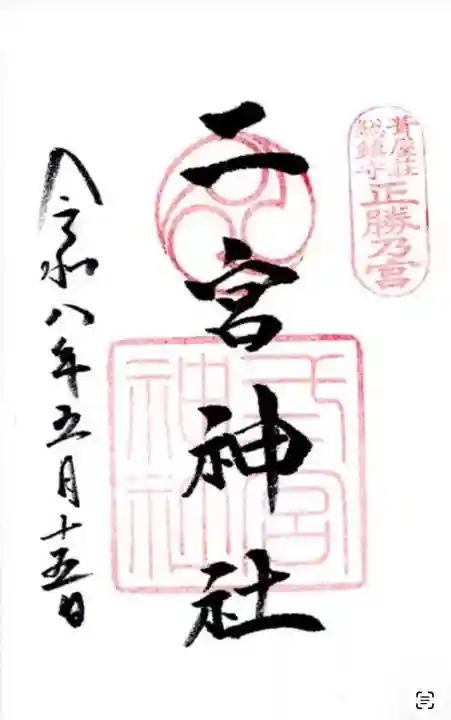 葺屋荘
総鎮守
正勝乃宮
二宮神社
二宮
神社
令和八年五月十五日